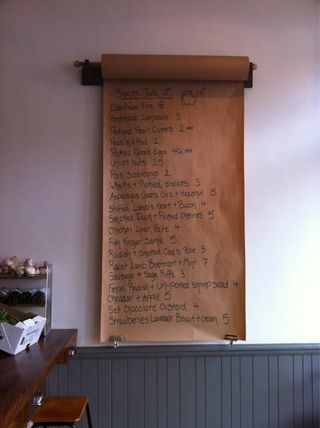 Specials June 10th
Elderflower Fizz 8
Homemade Lemonade 3
Portland Pearl Oysters 2 each
Peas in a Pod 2
Pickled Quails Eggs
Union Nuts
Pork Scratchings 2
Whelks + Pickled Shallots 3
Asparagus Goats Curd + Hazelnut 5
Stuffed Lamb's Heart + Bacon 4
Smoked Duck + Pickled Cherries 5
Chicken Liver Pate 4
Fish Finger Sarnie 5
Radish + Smoked Cod's Roe 3
Roast Lamb Beetroot + Mint 7
Sausage + Sage Puffs 3
Fennel, Radish + Un-potted Shrimp Salad 4
Cheddar + Apple 5
Set Chocolate Custard 4
Strawberries Lavender Biscuit + Cream 5